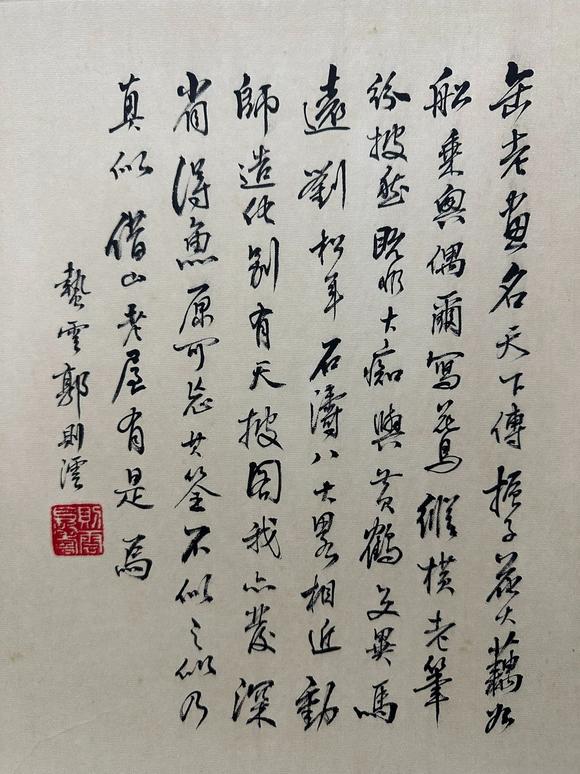 缶老畫名天下傳梔子花大藕如
船乘興偶爾寫花鳥縱橫老筆
紛披然既非大痴與黃鶴又異馬
遠劉松年石濤八大畧相近動
師造化別有天披图我亦發深
省得魚原可忘其筌不似之似乃
真似借山老屋有是焉
蟄雲郭則澐